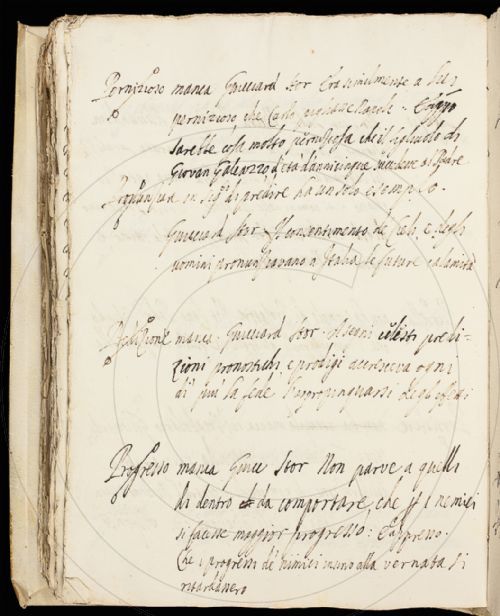 Pernizioso manca Guicciard Stor Era similmente a lui
pernizioso che Carlo
Sarebbe cosa molto perniziosa che il figliuolo di
Giovan Galeazzo d'età d'anni cinque
Pronunziare in sig.o di predire ha un solo esempio.
Guicciard Stor Il consentimento de' Cieli, e degli
uomini pronunziavano a Italia le future calamità
Predizione manca. Guicciard Stor. I segni celesti predi-
zioni pronostichi, e prodigi accresceva ogni
dì più la fede d'appropinquarsi degli effetti
Progresso manca Guicc Stor Non parve a quelli
di dentro da comportare, che i nemici
si facesse maggior progresso: E appresso.
Che i progressi de' nimici insino alla vernata si
ritardassero